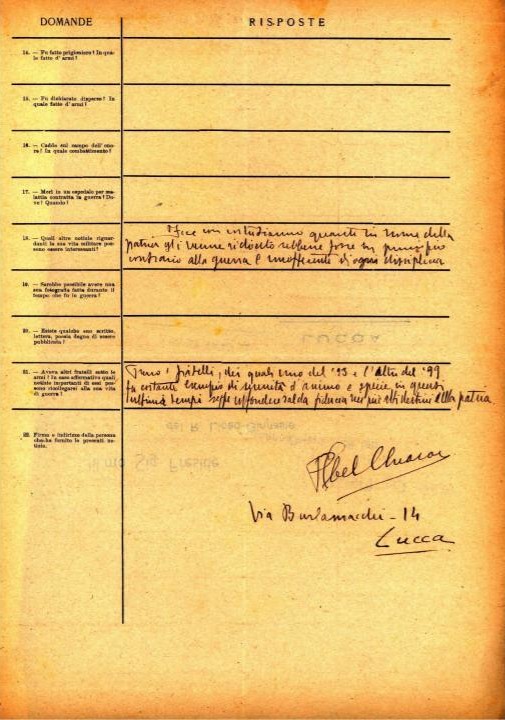 DOMANDE
RISPOSTE
14. — Fu fatto prigioniero? In qua-
le fatto d'armi?
15. — Fu dichiarato disperso? In
quale fatto d'armi?
16. — Cadde sul campo dell'ono-
re? In quale combattimento?
17. — Morì in un ospedale per ma-
lattia contratta in guerra? Do-
ve? Quando?
18. — Quali altre notizie riguar-
danti la sua vita militare pos-
sono essere interessanti?
Fece con entusiasmo quanto in nome della
patria gli venne richiesto sebbene fosse in principio
contrario alla guerra e insofferente di ogni disciplina
19. — Sarebbe possibile avere una
sua fotografia fatta durante il
tempo che fu in guerra?
20. — Esiste qualche suo scritto,
lettera, poesia degna di essere
pubblicata?
LUCCA
21. — Aveva altri fratelli sotto le
armi? In caso affermativo quali
notizie importanti di essi pos-
sono ricollegarsi alla sua vita
di guerra?
fratelli, dei quali uno del '93 e l'altro del '99
fu costante esempio di serenità d'animo e specie in questi
ultimi tempi seppe infondere salda fiducia nei più alti destini della patria.
del R. Liceo-Ginnasio
Ill.mo Sig. Preside
22. Firma e indirizzo della persona
che ha fornito le presenti no-
tizie.
Abel
Via Burlamacchi - 14
Lucca